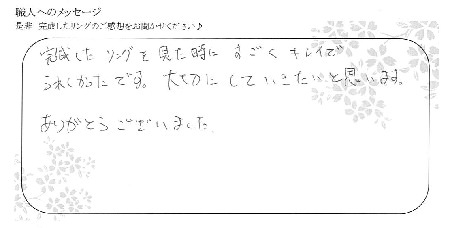 職人へのメッセージ
是非 完成したリングのご感想をお聞かせください♪
完成した リングを見た時に すごく キレイで
うれしかったです。大切に していきたいと思います。
ありがとうございました